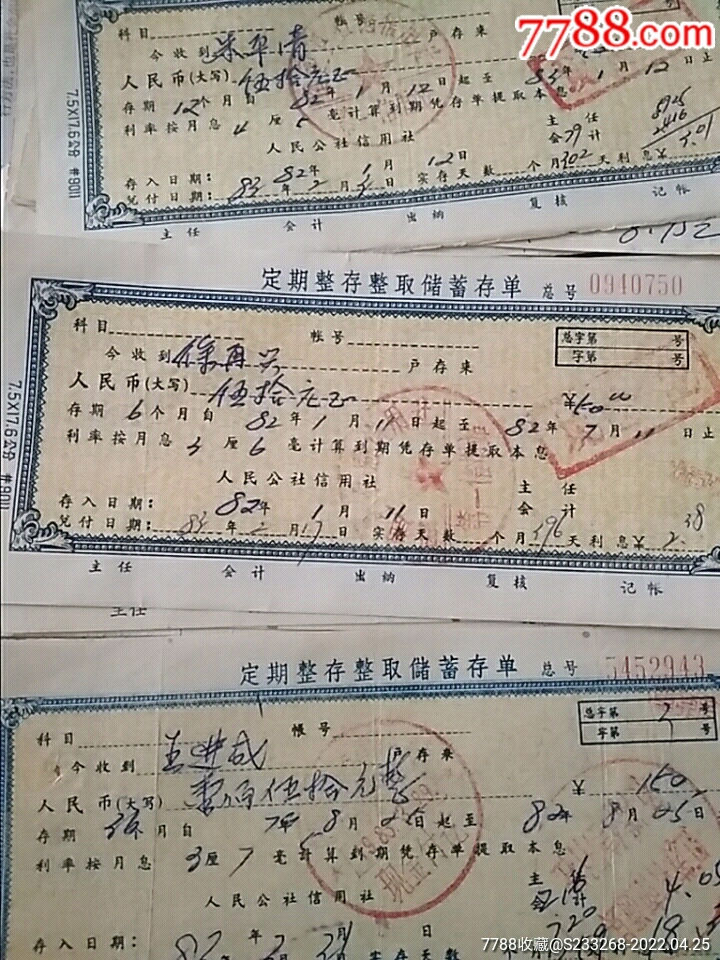 7788.com
科目 帐号
今收到 朱平清 户存来
人民币(大写) 伍拾元正
存期 12 个月自 82年1月12日起至 83年1月12日止
利率按月息 4 厘 毫计算到期凭存单提取本息
人民公社信用社 主任
会计
存入日期: 82年1月12日
兑付日期: 83年2月 日 实存天数 个月 天利息¥ 5.01
主任 会计 出纳 复核 记帐
7.5X17.6公分 #9011
0.752
定期整存整取储蓄存单 总号 0940750
科目 帐号 总字第 号
字第 号
今收到 徐再兴 户存来
人民币(大写) 伍拾元正 ¥50
存期 6 个月自 82年1月11日起至 82年7月11日止
利率按月息 3 厘 6 毫计算到期凭存单提取本息
人民公社信用社 主任
会计
存入日期: 82年1月11日
兑付日期: 83年2月17日 实存天数 个月396天利息¥ 2.38
主任 会计 出纳 复核 记帐
7.5X17.6公分 #9011
主任
定期整存整取储蓄存单 总号 5452943
科目 帐号 总字第 号
字第 号
今收到 王进成 户存来
人民币(大写) 壹佰伍拾元整 ¥ 150
存期 个月自 年8月 日起至 82年8月25日止
利率按月息 3 厘 7 毫计算到期凭存单提取本息
人民公社信用社 主任
会计 4.05
存入日期:
7788收藏@S233268-2022.04.25